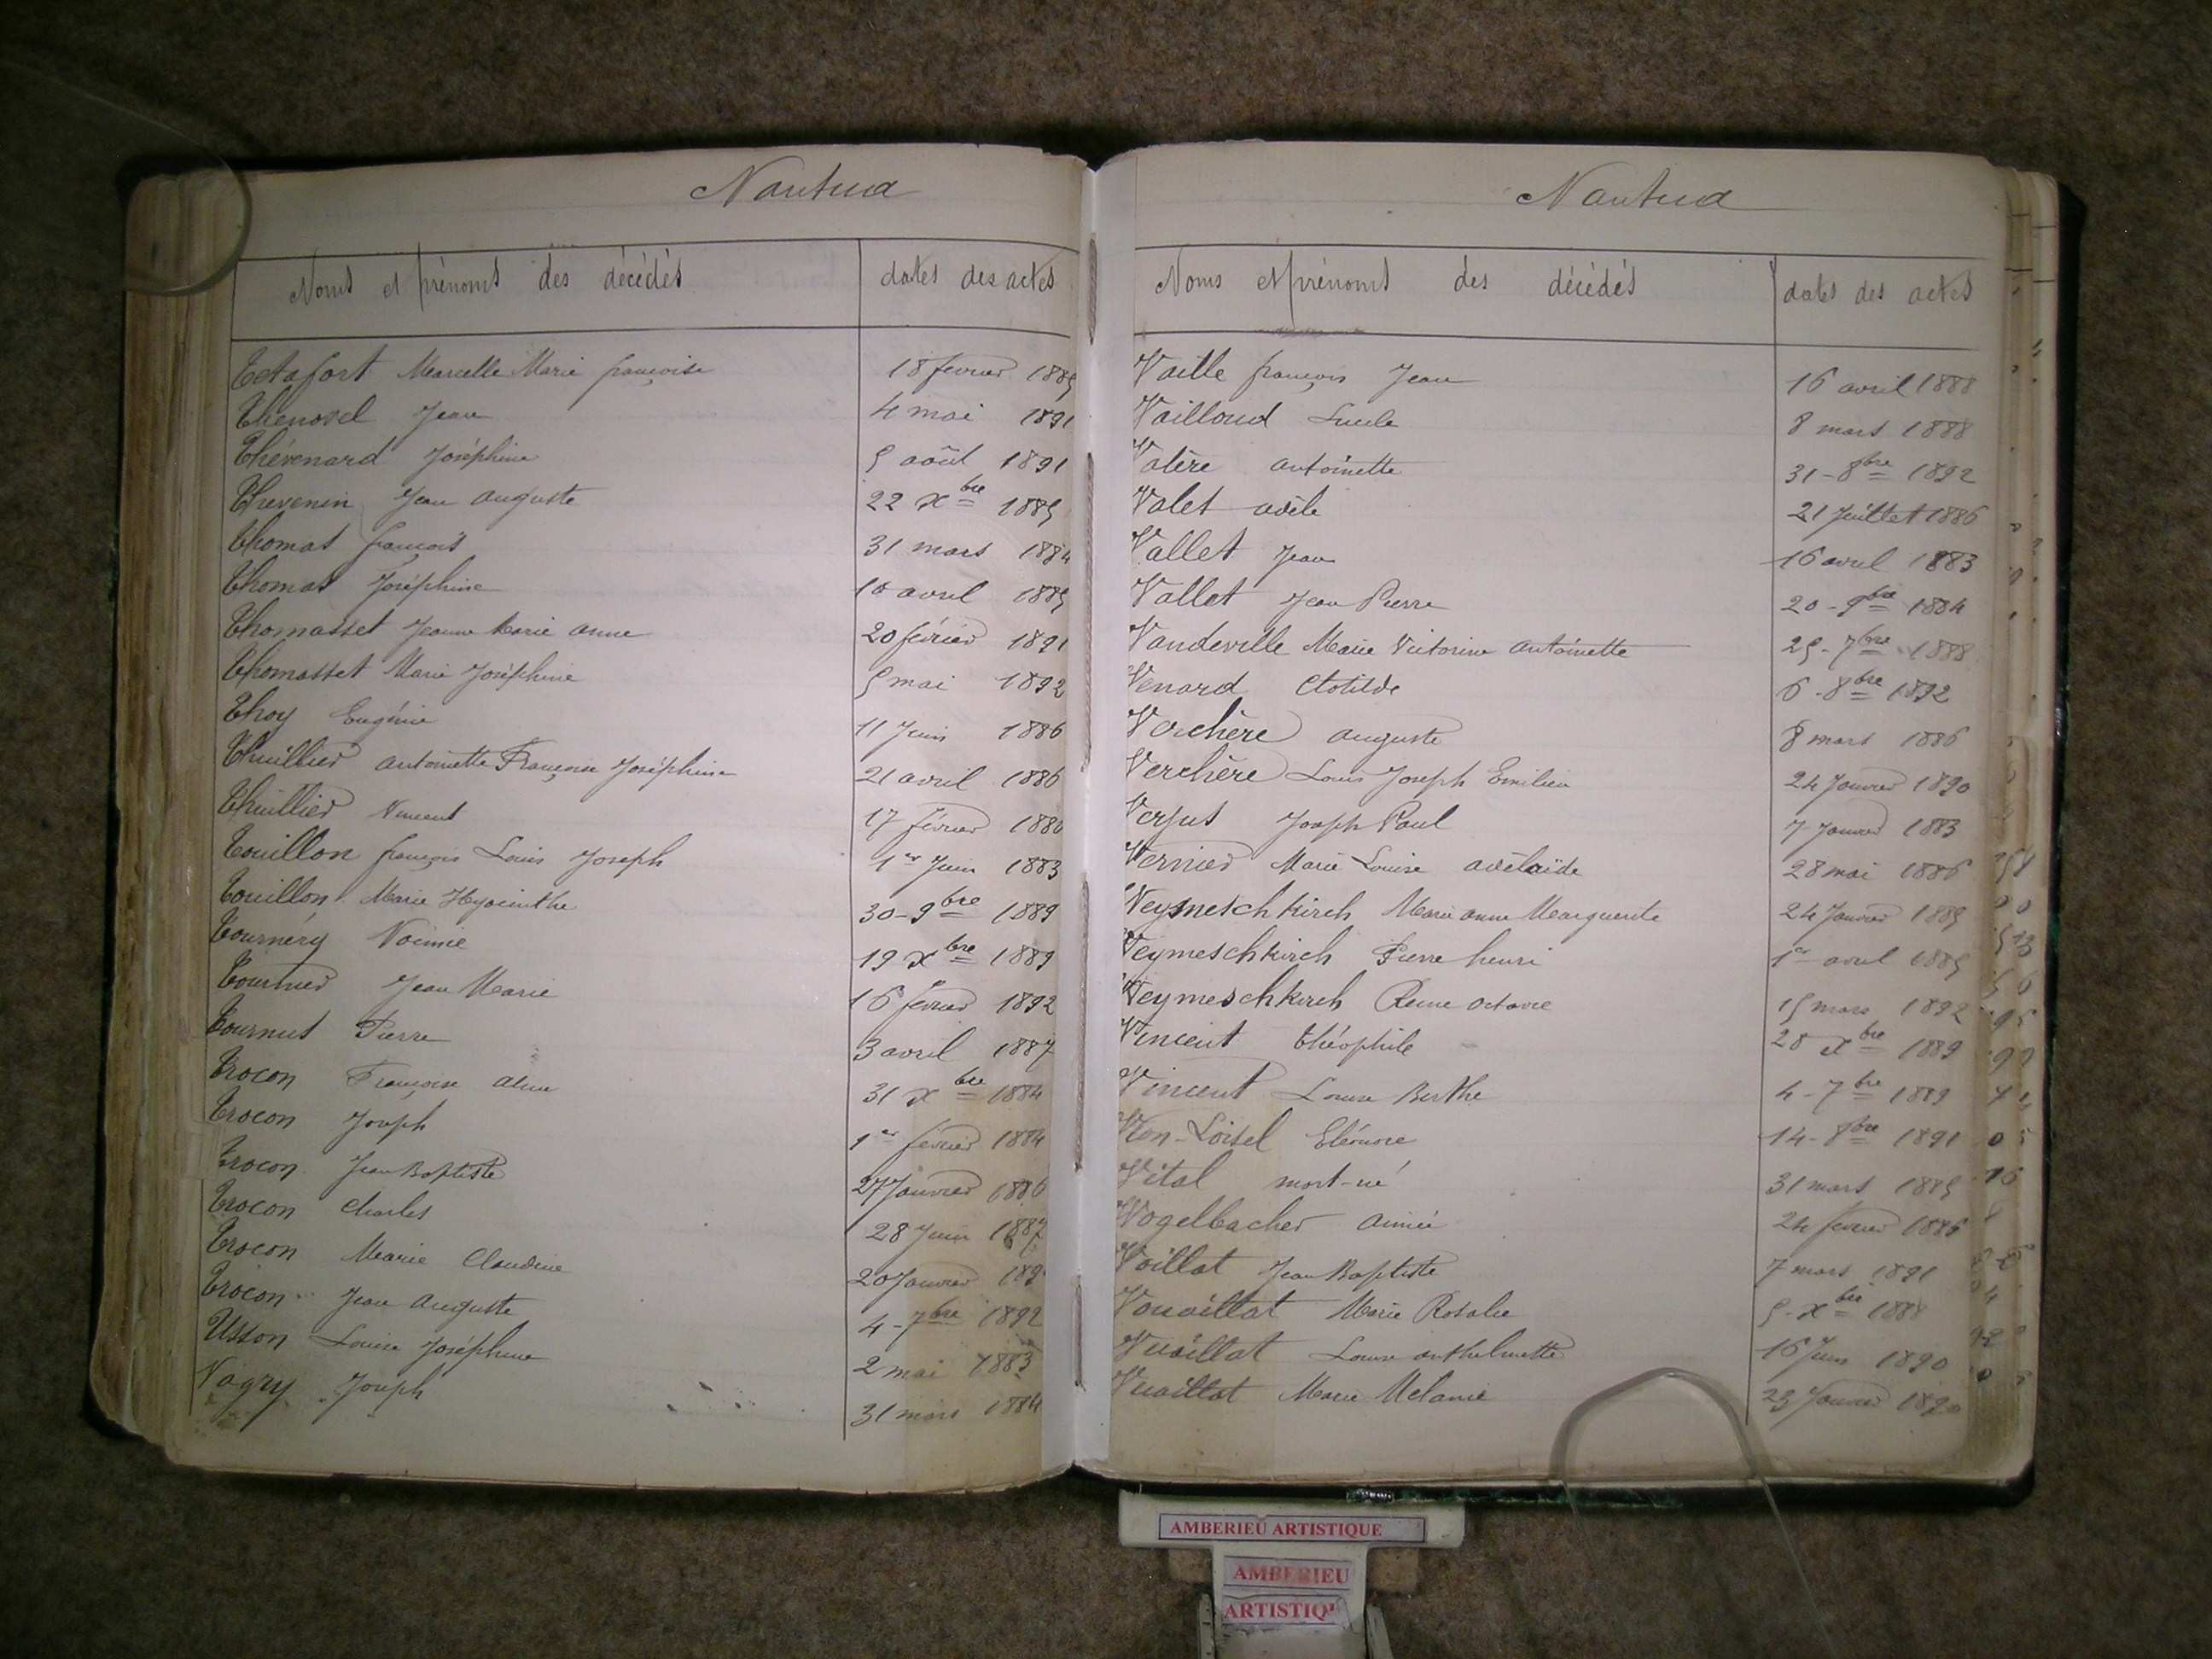 Nantua
Noms et prénoms des décédés dates des actes
Tetafort Marcelle Marie françoise 18 fevrier 1885
Thenovel Jean 4 mai 1891
Thévenard Joséphine 5 août 1891
Thevenin Jean auguste 22 Xbre 1885
Thomas françois 31 mars 1884
Thomas Joséphine 18 avril 1885
Thomasset Jeanne Marie anne 20 février 1891
Thomasset Marie Joséphine 5 mai 1892
Thoy Eugénie 11 Juin 1886
Thuillier antoinette Françoise Joséphine 21 avril 1886
Thuillier Vincent 17 février 1886
Touillon françois Louis Joseph 1er Juin 1883
Touillon Marie Hyacinthe 30-9bre 1889
Tournéry Noémie 19 Xbre 1889
Tournier Jean Marie 16 fevrier 1892
Tournut Pierre 3 avril 1887
Trocon Françoise aline 31 Xbre 1884
Trocon Joseph 1er février 1884
Trocon Jean Baptiste 27 Janvier 1886
Trocon Charles 28 Juin 1887
Trocon Marie Claudine 20 Janvier
Trocon Jean Auguste 4-7bre 1892
Usson Louise Joséphine 2 mai 1883
Vagry Joseph 31 mars 1884
Nantua
Noms et prénoms des décédés dates des actes
Vaille françois Jean 16 avril 1888
Vailloud Lucile 8 mars 1888
Valère antoinette 31-8bre 1892
Valet adèle 21 Juillet 1886
Vallet Jean 16 avril 1883
Vallet Jean Pierre 20-9bre 1884
Vandeville Marie Victorine antoinette 25-7bre 1888
Venard Clotilde 6-8bre 1892
Verchère auguste 8 mars 1886
Verchère Louis Joseph Emilien 24 Janvier 1890
Verjus Joseph Paul 7 Janvier 1883
Vernier Marie Louise adélaïde 28 mai 1886
Veymeschkirch Marie anne Marguerite 24 Janvier 1885
Veymeschkirch Pierre henri 1er avril 1885
Veymeschkirch Reine octavie 15 mars 1892
Vincent théophile 28 Xbre 1889
Vincent Louise Berthe 4-7bre 1889
Eléonore 14-8bre 1891
Vital mort-né 31 mars 1885
Vogelbacher aimée 24 fevrier 1886
Voillat Jean Baptiste 7 mars 1891
Vouaillat Marie Rosalie 5-Xbre 1888
Vuaillat Louise anthelmette 16 Juin 1890
Vuaillat Marie Melanie 23 Janvier 1890
AMBERIEU ARTISTIQUE
AMBERIEU
ARTISTIQU